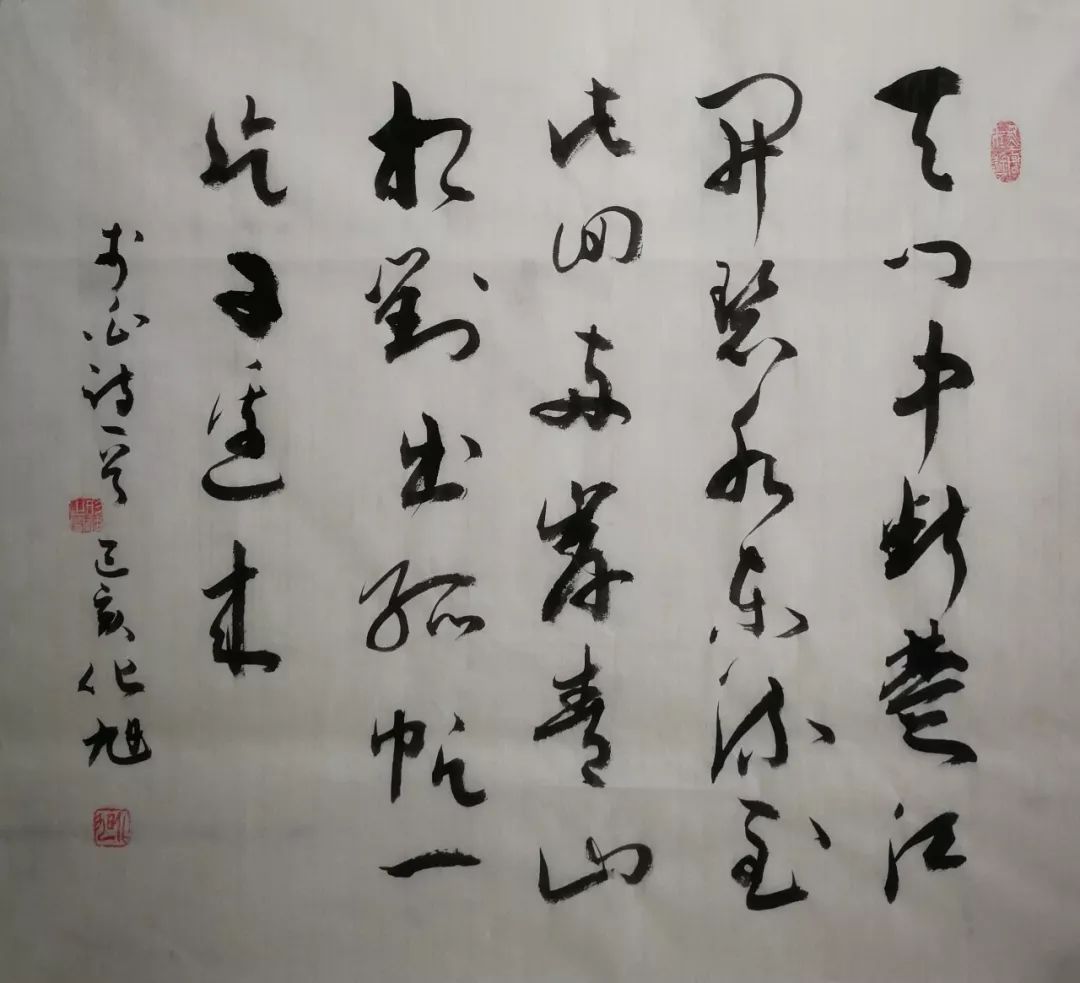 天门中断楚江
开碧水东流至
此回两岸青山
相對出孤帆一
片日边来
李白诗一首 己亥 化旭